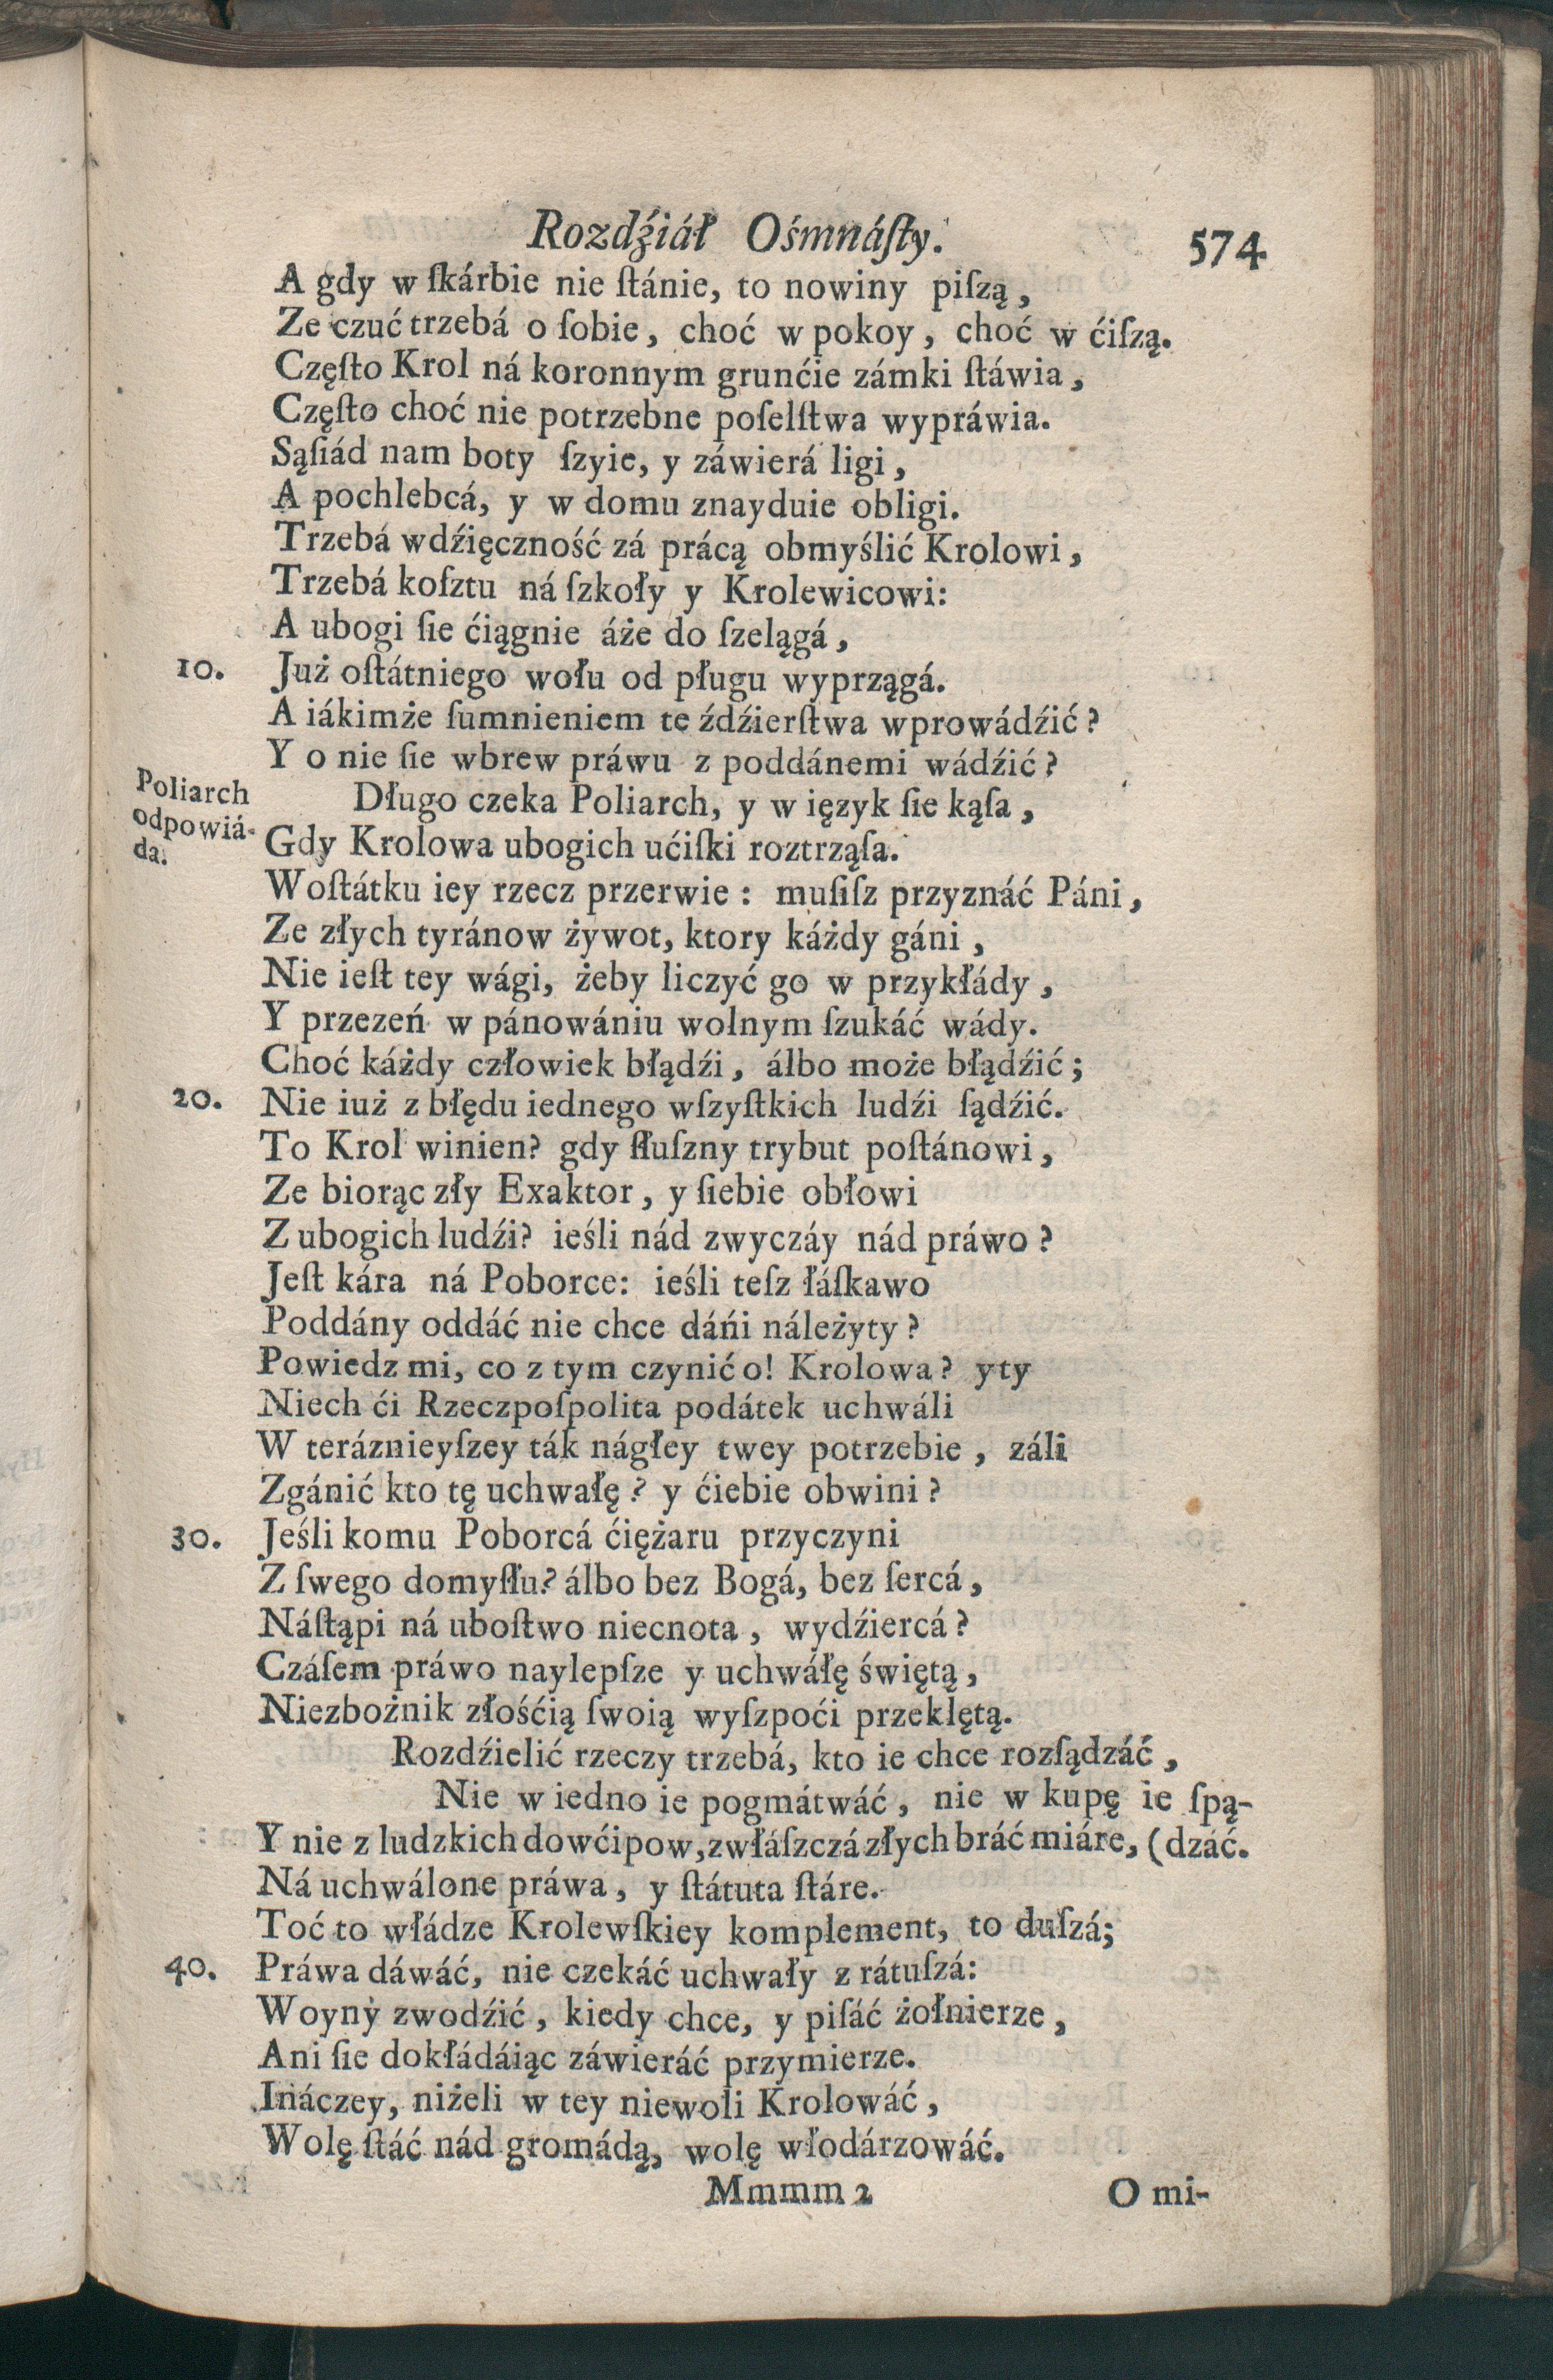 Rozdźiáł Ośmnáſty. 574
A gdy w ſkárbie nie ſtánie, to nowiny piſzą,
Ze czuć trzebá o ſobie, choć w pokoy, choć w ćiſzą.
Częſto Krol ná koronnym grunćie zámki ſtáwia,
Częſto choć nie potrzebne poſelſtwa wypráwia.
Sąſiád nam boty ſzyie, y záwierá ligi,
A pochlebcá, y w domu znayduie obligi.
Trzebá wdźięczność zá prácą obmyślić Krolowi,
Trzebá koſztu ná ſzkoły y Krolewicowi:
A ubogi ſie ćiągnie áże do ſzelągá,
10. Już oſtátniego wołu od pługu wyprzągá.
A iákimże ſumnieniem te źdźierſtwa wprowádźić?
Y o nie ſie wbrew práwu z poddánemi wádźić?
Poliarch odpowiá-da. Długo czeka Poliarch, y w ięzyk ſie kąſa,
Gdy Krolowa ubogich ućiſki roztrząſa.
Woſtátku iey rzecz przerwie: muſiſz przyznáć Páni,
Ze złych tyránow żywot, ktory káżdy gáni,
Nie ieſt tey wági, żeby liczyć go w przykłády,
Y przezeń w pánowániu wolnym ſzukáć wády.
Choć káżdy człowiek błądźi, álbo może błądźić;
20. Nie iuż z błędu iednego wſzyſtkich ludźi ſądźić.
To Krol winien? gdy ſłuſzny trybut poſtánowi,
Ze biorąc zły Exaktor, y ſiebie obłowi
Z ubogich ludźi? ieśli nád zwyczáy nád práwo?
Jeſt kára ná Poborce: ieśli teſz łáſkawo
Poddány oddáć nie chce dáńi náleżyty?
Powiedz mi, co z tym czynić o! Krolowa? yty
Niech ći Rzeczpoſpolita podátek uchwáli
W teráznieyſzey ták nágłey twey potrzebie, záli
Zgánić kto tę uchwałę? y ćiebie obwini?
30. Jeśli komu Poborcá ćiężaru przyczyni
Z ſwego domyſłu? álbo bez Bogá, bez ſercá,
Náſtąpi ná uboſtwo niecnota, wydźiercá?
Czáſem práwo naylepſze y uchwáłę świętą,
Niezbożnik złośćią ſwoią wyſzpoći przeklętą.
Rozdźielić rzeczy trzebá, kto ie chce rozſądzáć,
Nie w iedno ie pogmátwáć, nie w kupę ie ſpą-
Y nie z ludzkich dowćipow, zwłáſzczá złych bráć miáre, (dzáć.
Ná uchwálone práwa, y ſtátuta ſtáre.
Toć to władze Krolewſkiey komplement, to duſzá;
40. Práwa dáwáć, nie czekáć uchwały z rátuſzá:
Woyny zwodźić, kiedy chce, y piſáć żołnierze,
Ani ſie dokłádáiąc záwieráć przymierze.
Ináczey, niżeli w tey niewoli Krolowáć,
Wolę ſtáć nád gromádą, wolę włodárzowáć.
Mmmm 2 O mi-